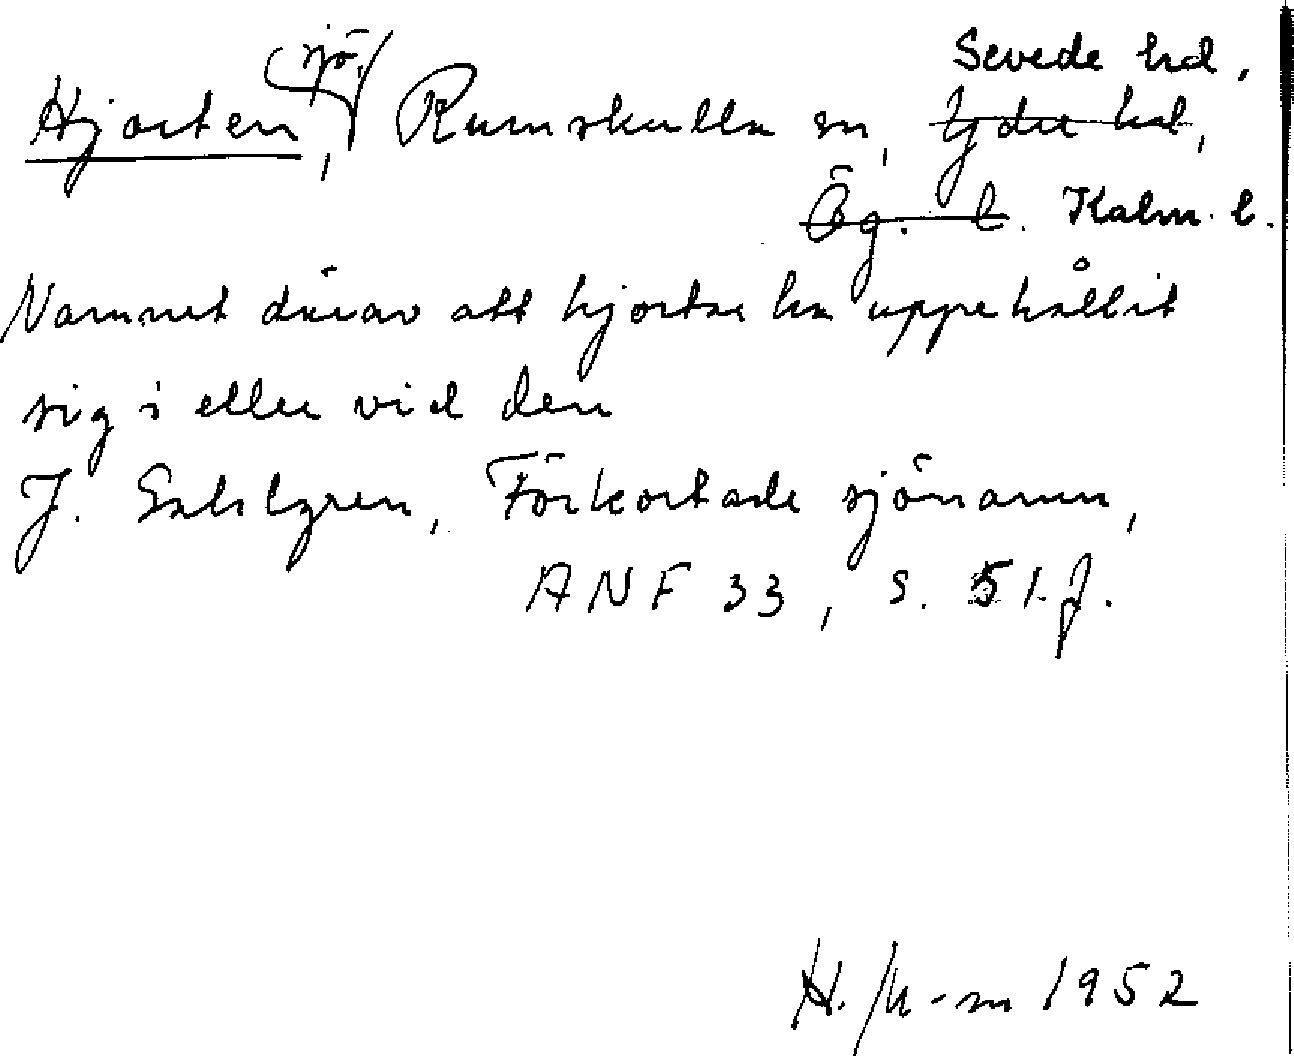 Sevede hd,
Hjorten, sjö, Rumskulla sn, Ydre hd,
Ög. l. Kalm. l.
Namnet därav att hjortar ha uppehållit
sig i eller vid den
J. Sahlgren, Förkortade sjönamn,
ANF 33, s. 51 f.
H. 1952